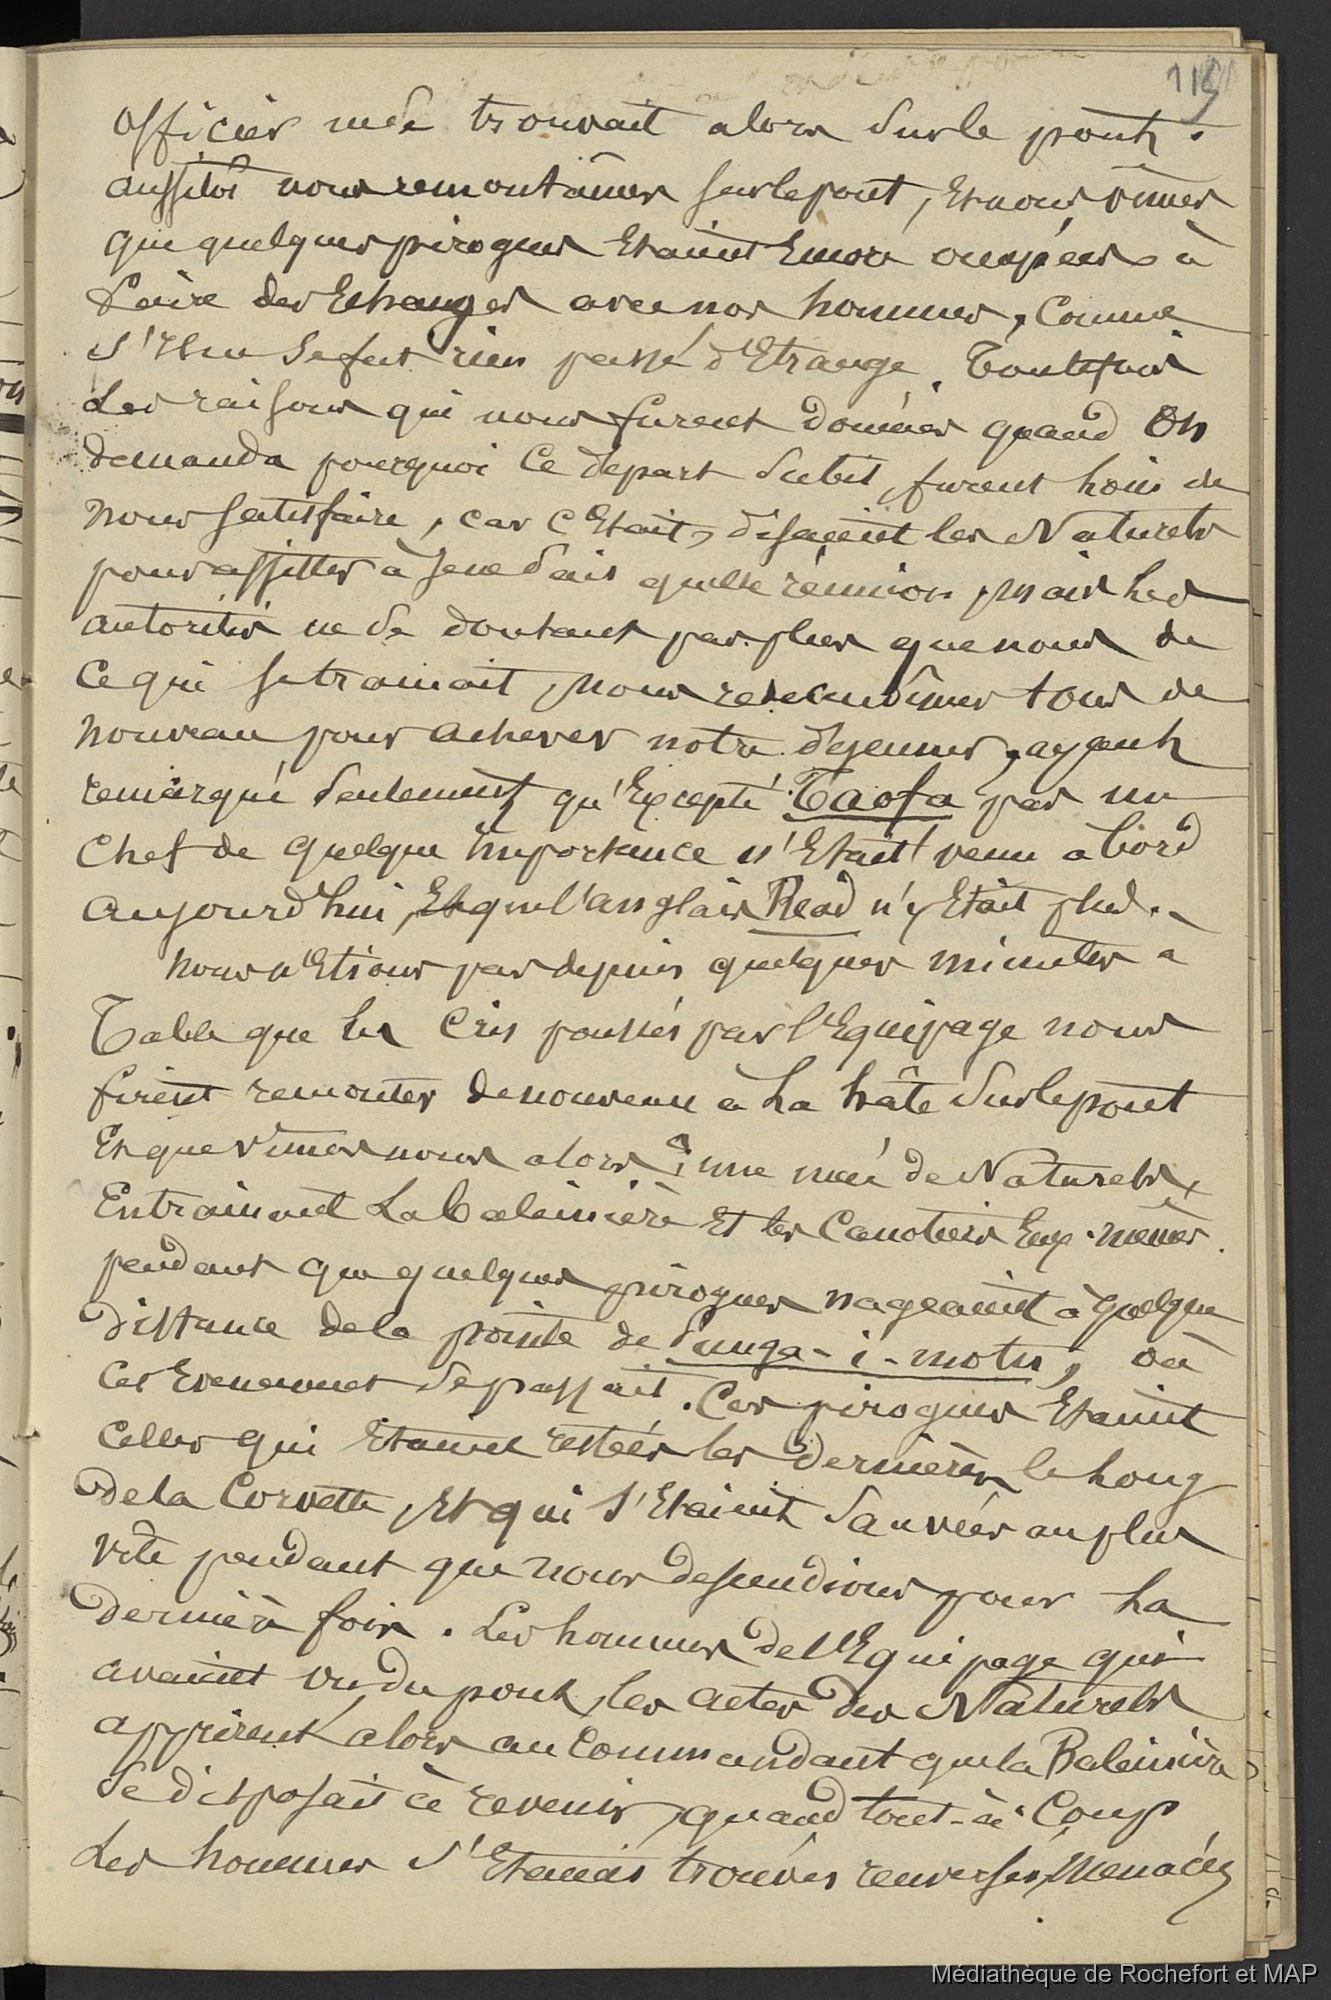 115
officier ne se trouvait alors sur le pont.
aussitôt nous remontâmes sur le pont, et nous vîmes
que quelques pirogues Etaient Encore occupées à
faire des Echanges avec nos hommes, comme
s'Il ne se fut rien passé d'Etrange. Toutefois
Les raisons qui nous furent données quand On
demanda pourquoi Ce départ Subit, furent loin de
nous satisfaire, car C'Etait, disaient les Naturels
pour assister à je ne sais quelle réunion, mais Les
autorités ne se doutant pas plus que nous de
Ce qui se tramait, nous redescendîmes tous de
nouveau pour achever notre déjeuner, ayant
remarqué Seulement qu'Excepté Taofa pas un
Chef de quelque Importance n'Etait venu abord
aujourd'hui, Et que l'anglais Read n'y Etait plus.
nous n'Etions pas depuis quelques minutes à
Table que les Cris poussés par l'Equipage nous
firent remonter de nouveau à La hâte Sur le pont
Et que vîmes nous alors ? une nuée de Naturels
Entrainant La baleinière Et les Canotiers Eux-mêmes
pendant que quelques pirogues nageaient à quelque
distance de la pointe de Sunga-i-motu, où
Cet Evenement Se passait. Ces pirogues Etaient
Celles qui Etaient restées les dernières le Long
De la Corvette, Et qui s'Etaient Sauvées au plus
vite pendant que nous descendions pour La
dernière fois. Les hommes de l'Equipage qui
avaient vu du pont, les actes des Naturels
apprirent alors au Commandant que la Baleinière
Se disposait à revenir, quand tout-à-Coup
Les hommes s'Etaient trouvés renversés, Menacés
Médiathèque de Rochefort et MAP